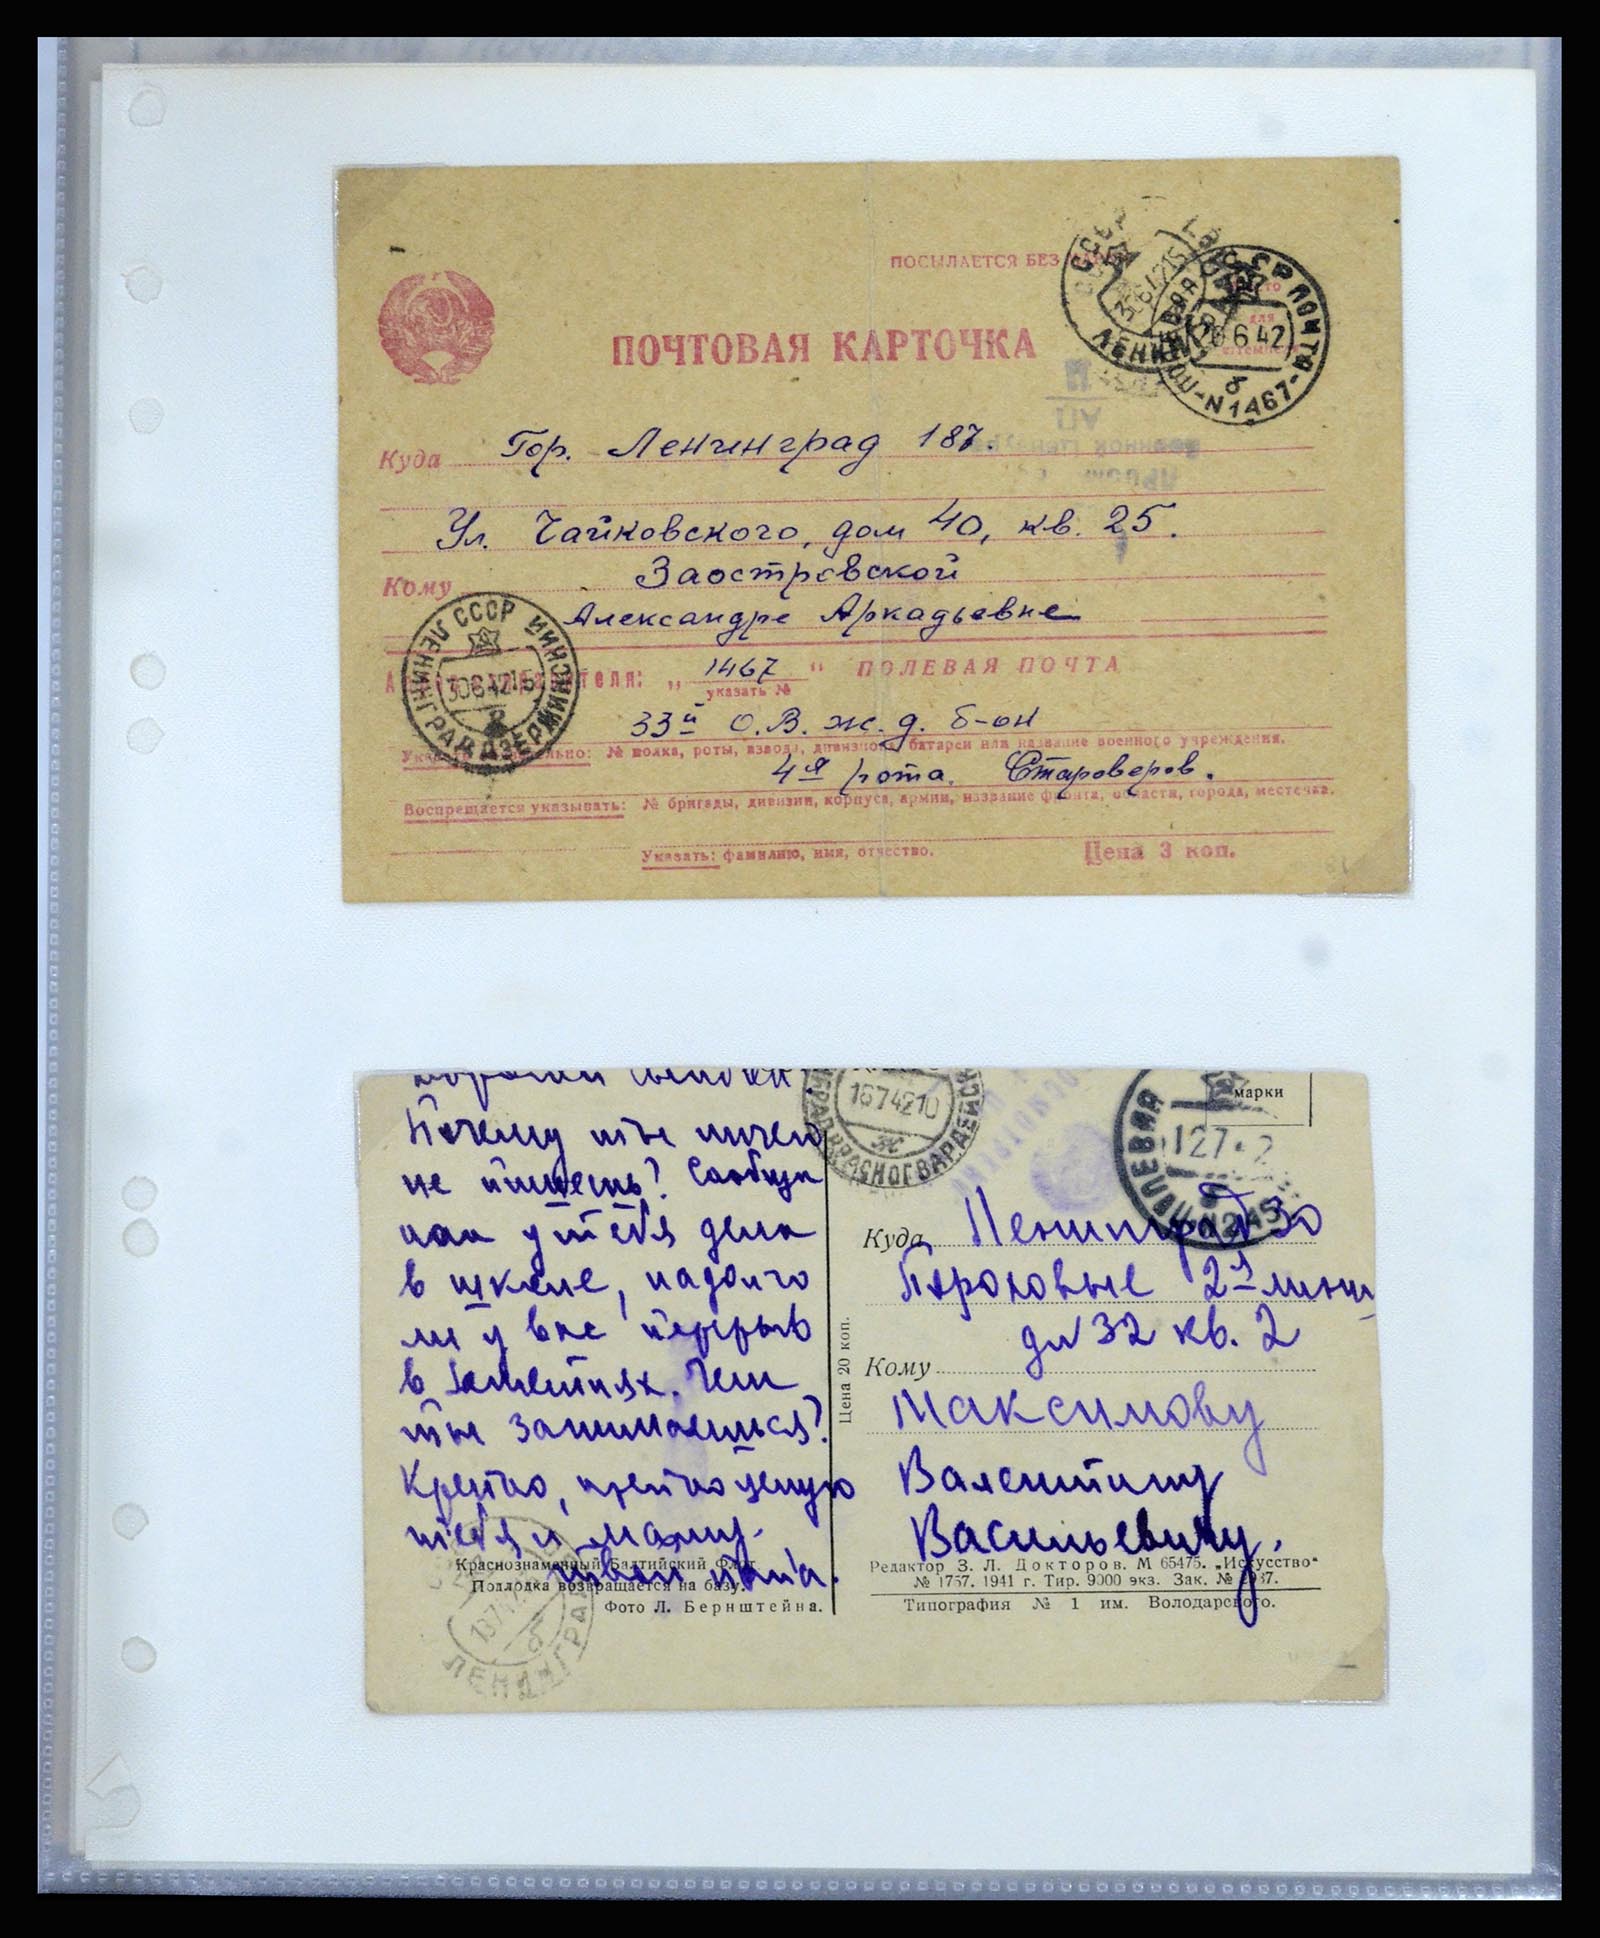 ПОСЫЛАЕТСЯ БЕЗ
ПОЧТОВАЯ КАРТОЧКА
СССР ЛЕНИНГРАД
3061 4215
ПОЛЕВАЯ ПОЧТА
6 42
б
N1467
Куда Гор. Ленинград 187.
Ул. Чайковского, дом 40, кв. 25.
Кому Заостровской
Александре Аркадьевне
СССР ЛЕНИНГРАД ДЗЕРЖИНСКИЙ
30 6 42 15
"1467" ПОЛЕВАЯ ПОЧТА
указать №
33й О.В. ж.д. б-он
№ полка, роты, взвода, дивизиона, батареи или название военного учреждения.
4я рота. Староверов.
Воспрещается указывать: № бригады, дивизии, корпуса, армии, название фронта, области, города, местечка.
Указать: фамилию, имя, отчество. Цена 3 коп.
Почему ты ничего
не пишешь? Сообщи
как у тебя дела
в школе, надолго
ли у вас перерыв
в занятиях. Чем
ты занимаешься?
Крепко, крепко целую
тебя и маму.
твой папа.
Краснознаменный Балтийский Флот
Подлодка возвращается на базу.
Фото Л. Бернштейна.
1374
б
ЛЕНИНГРАД
16 7 42 10
ж
КРАСНОГВАРДЕЙСК
марки
127 2
Куда Ленинград 30
Пороховые 2я лини
дм 32 кв. 2
Кому
Максимову
Валентину
Васильевичу.
Цена 20 коп.
Редактор З. Л. Докторов. М 65475. „Искусство“
№ 1757. 1941 г. Тир. 9000 экз. Зак. №
Типография № 1 им. Володарского.